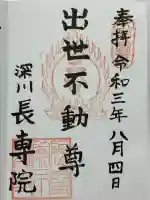 奉拝 令和三年八月四日
出世不動尊
深川 長専院